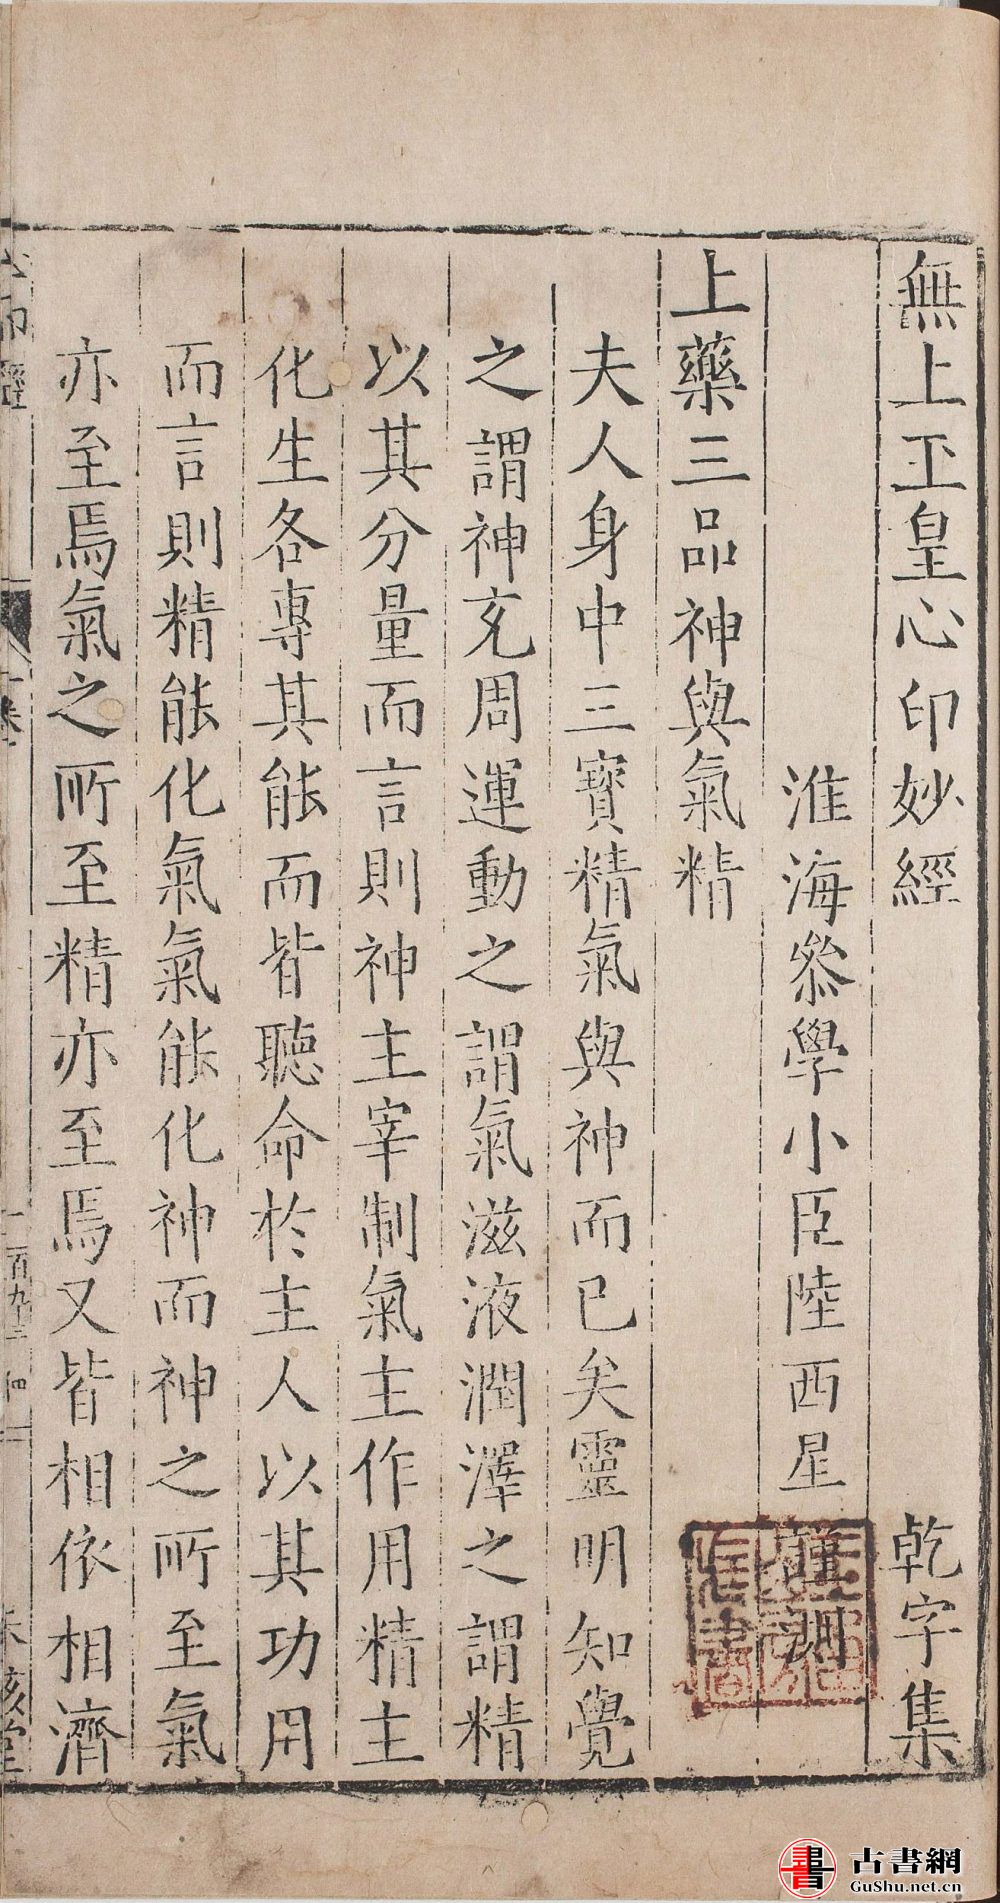 無上玉皇心印妙經 乾字集
淮海叅學小臣陸西星謹測
上藥三品神與氣精
夫人身中三寶精氣與神而已矣靈明知覺
之謂神充周運動之謂氣滋液潤澤之謂精
以其分量而言則神主宰制氣主作用精主
化生各專其能而皆聽命於主人以其功用
而言則精能化氣氣能化神而神之所至氣
亦至焉氣之所至精亦至焉又皆相依相濟
古書網
GuShu.net.cn